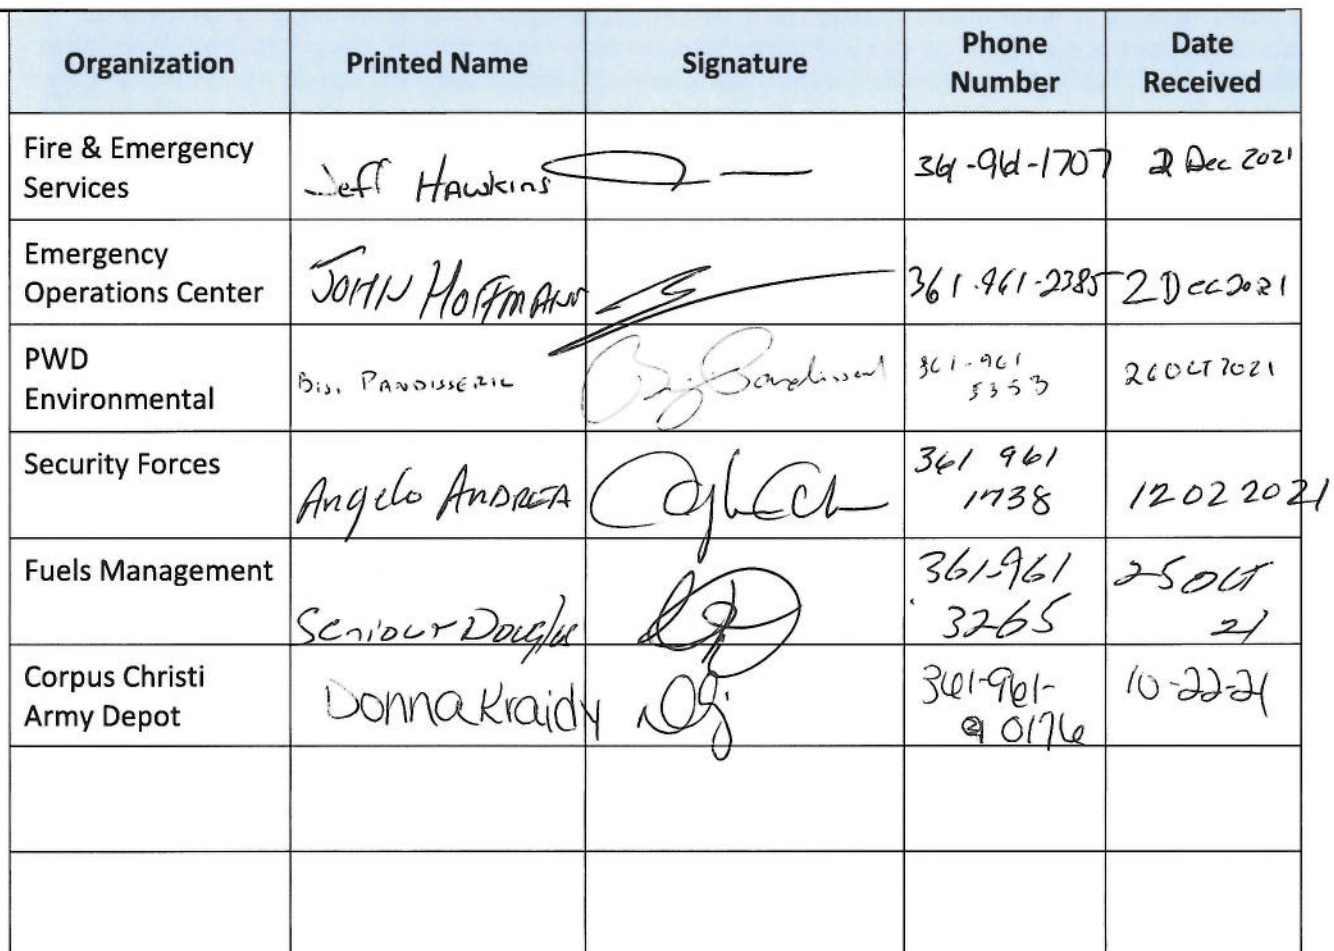 Organization Printed Name Signature Phone Number Date Received
Fire & Emergency Services Jeff Hawkins 361-961-1707 2 Dec 2021
Emergency Operations Center JOHN HOFFMANN 361.961-2385 2 Dec 2021
PWD Environmental 361-961 5353 26 OCT 2021
Security Forces Angelo ANDREA 361 961 1738 12 02 2021
Fuels Management Douglas 361-961 3265 25 OCT 21
Corpus Christi Army Depot Donna Kraidy 361-961- 0176 10-22-21